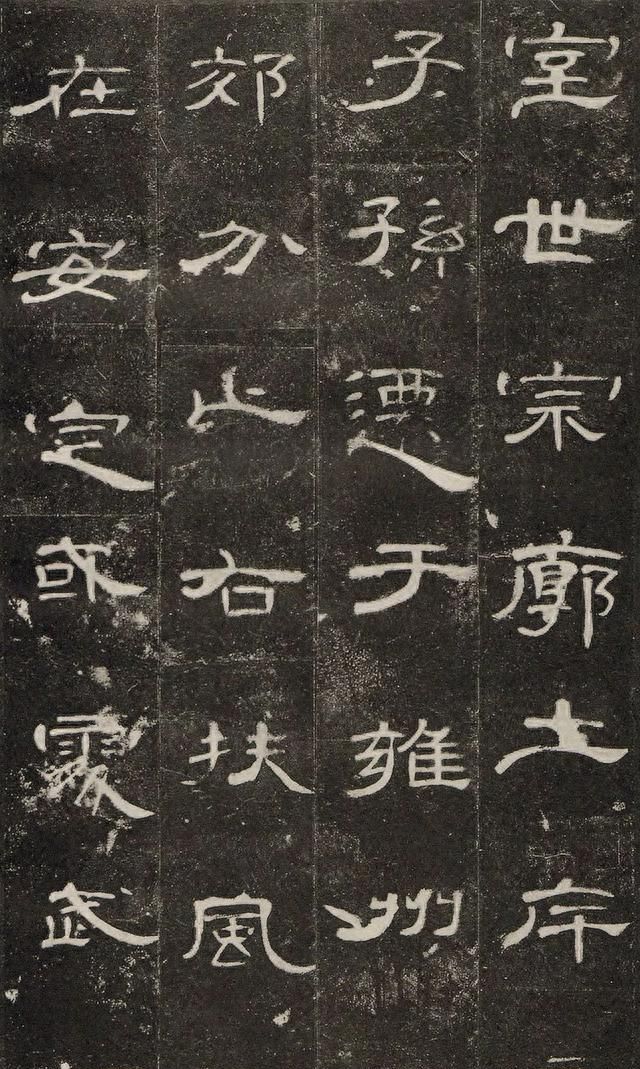 室世宗廓土斥
子孫遷于雍州
郊分止右扶風
在安定或處武